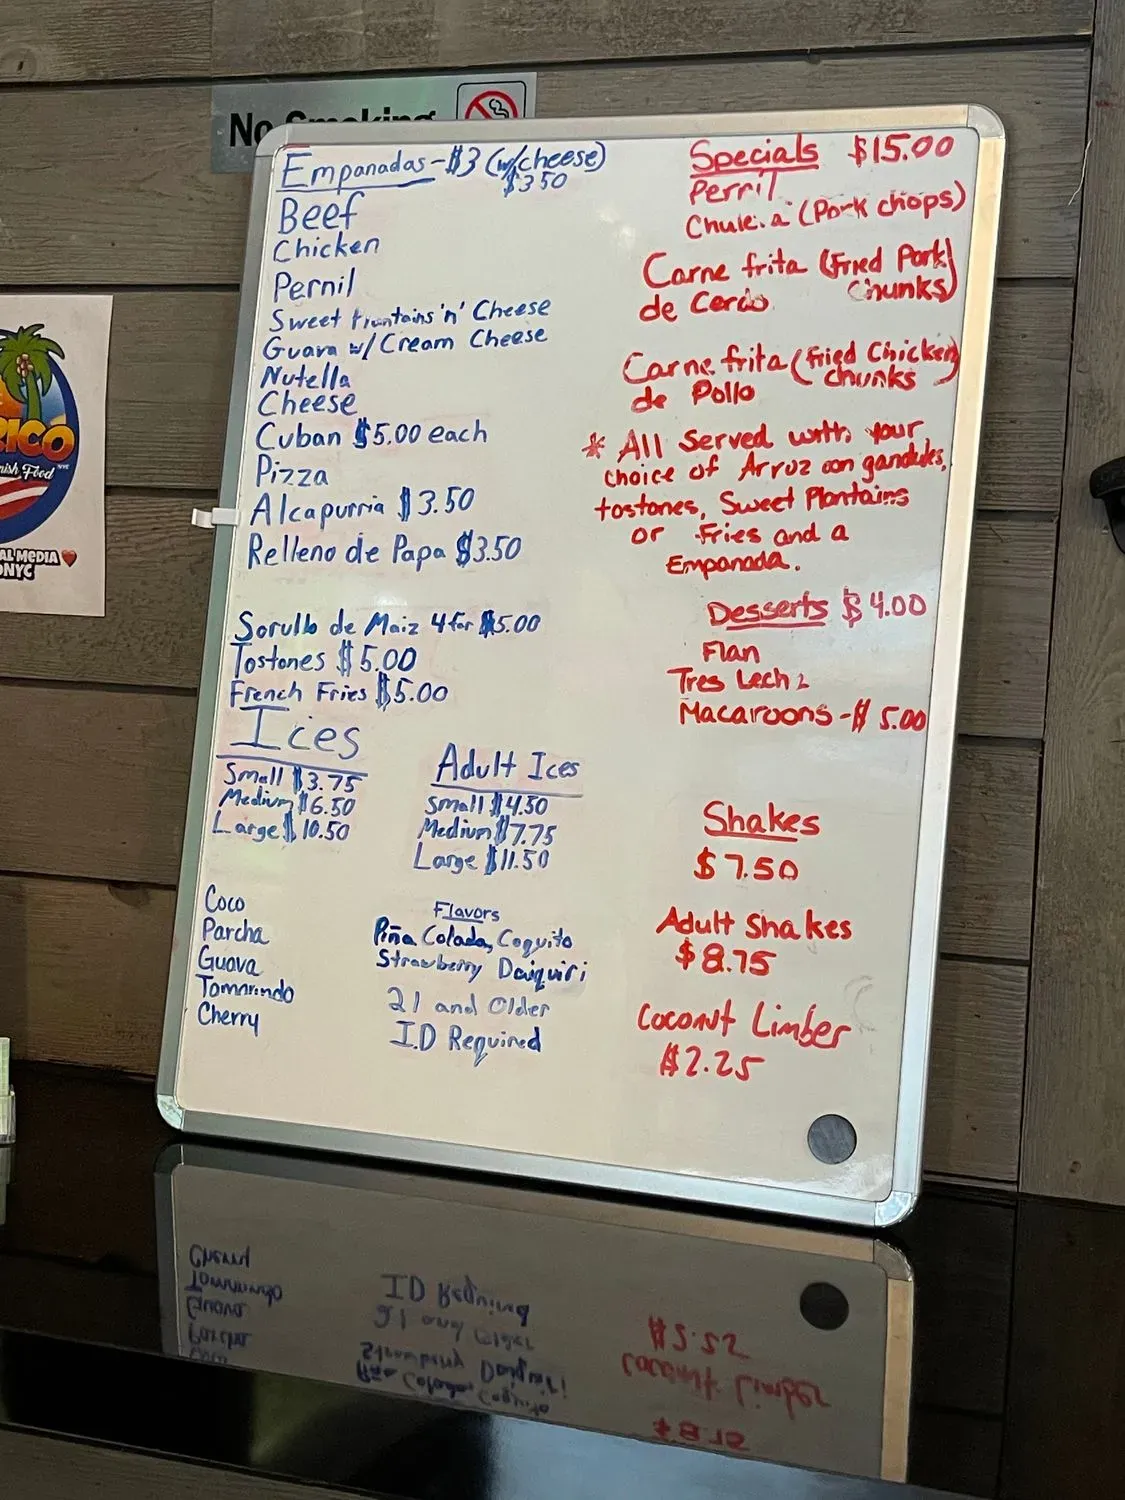 No Smoking
Empanadas - $3 (w/cheese)
$3.50
Beef
Chicken
Pernil
Sweet Plantains 'n' Cheese
Guava w/ Cream Cheese
Nutella
Cheese
Cuban $5.00 each
Pizza
Alcapurria $3.50
Relleno de Papa $3.50
Sorullo de Maiz 4 for $5.00
Tostones $5.00
French Fries $5.00
Ices
Small $3.75
Medium $6.50
Large $10.50
Coco
Parcha
Guava
Tomarindo
Cherry
Adult Ices
Small $4.50
Medium $7.75
Large $11.50
Flavors
Piña Colada, Coquito
Strawberry Daiquiri
21 and Older
I.D Required
Specials $15.00
Pernil
(Pork chops)
Carne frita (Fried Pork
de Cerdo chunks)
Carne frita (Fried Chicken)
de Pollo chunks
* All Served with your
choice of Arroz con gandules,
tostones, Sweet Plantains
or Fries and a
Empanada.
Desserts $4.00
Flan
Tres Lech
Macaroons - $5.00
Shakes
$7.50
Adult Shakes
$8.75
Coconut Limber
$2.25
RICO
nish Food
AL MEDIA
ONYC